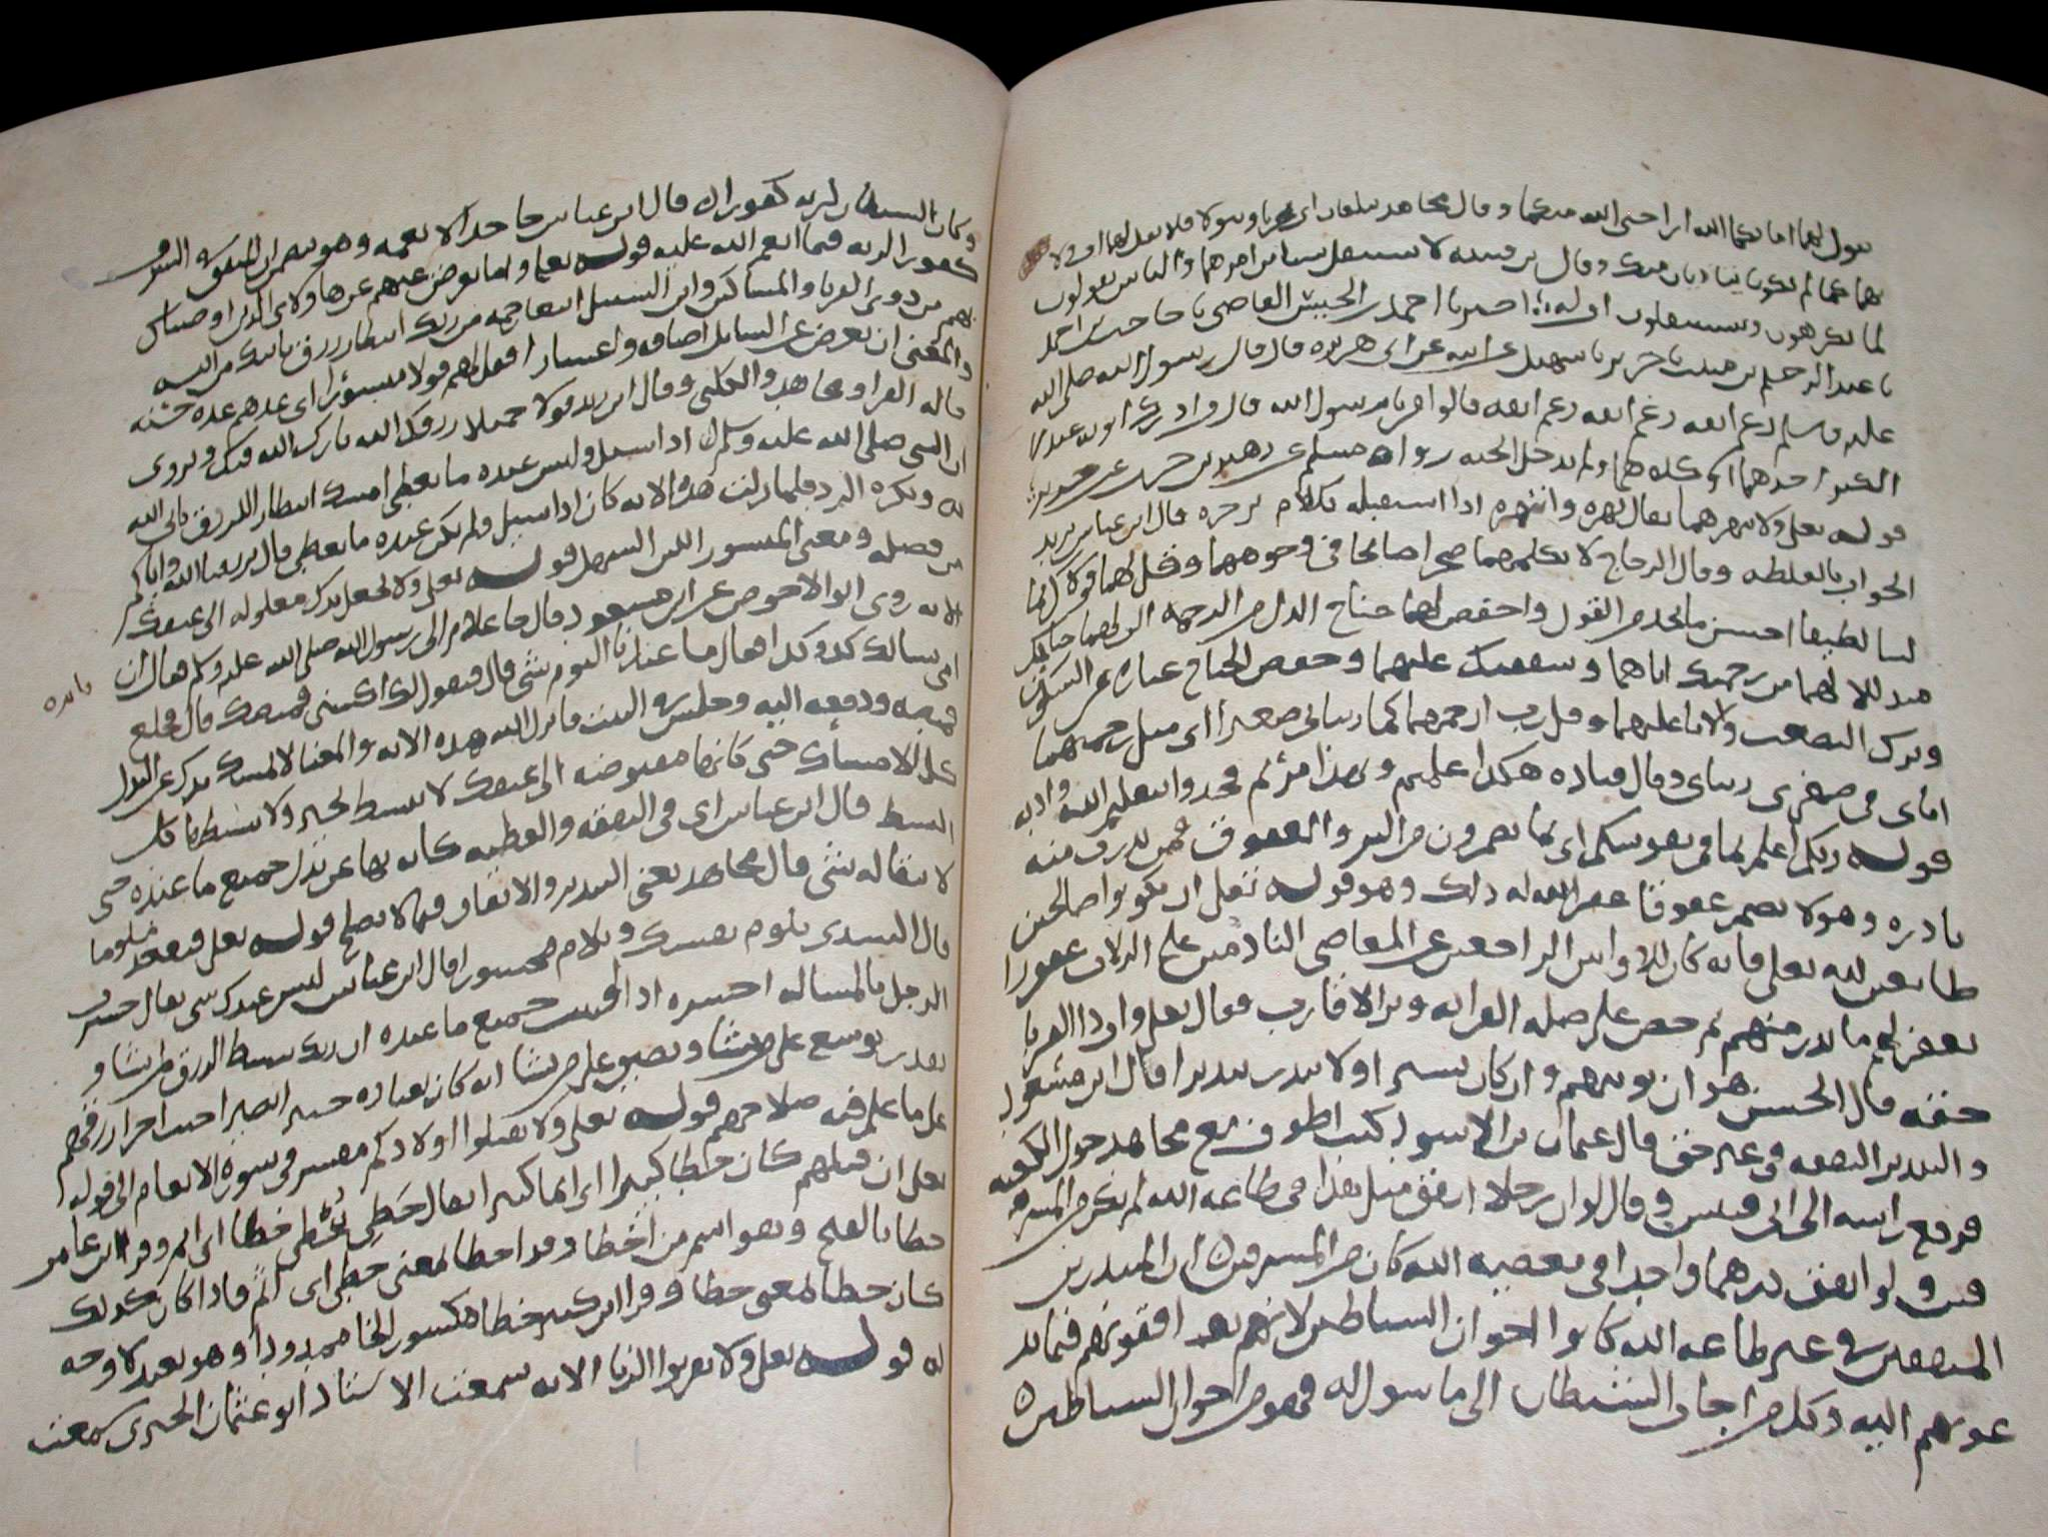 يقول لهما اما يبلغان الله ابرا حتى الله منكما وقال مجاهد يبلغان اى يخريا ويبولا فلا تقل لهما اف ولا
بهما عما لم يكونا يتاذيان منك وقال بن قتيبه لا تستثقل شيا من امرهما والناس يقولون
لما يكرهون ويستثقلون اف له اخبرنا احمد بن الحسن القاضي نا حاجب بن احمد
نا عبد الرحيم بن منيب نا جرير نا سهيل عن ابيه عن ابى هريره قال قال رسول الله صلى الله
عليه وسلم رغم انفه رغم انفه رغم انفه قالوا من يا رسول الله قال من ادرك ابويه عنده
الكبر احدهما او كلاهما ولم يدخل الجنه رواه مسلم عن زهير بن حرب عن جرير
قوله تعلى ولا تنهرهما يقال نهره وانتهره اذا استقبله بكلام يزجره قال ابن عباس يريد
الجواب بالغلظه وقال الزجاج لا تكلمهما ضجرا صائحا فى وجوههما وقل لهما قولا كريما
لينا لطيفا احسن ما تجد من القول واخفض لهما جناح الذل من الرحمه الن لهما جانبك
متذللا لهما من رحمتك اياهما وشفقتك عليهما وخفض الجناح عباره عن السكون
وترك التصعب والابا عليهما وقل رب ارحمهما كما ربيانى صغيرا اى مثل رحمتهما
اياى فى صغرى ربيانى وقال قتاده هكذا علمتم وبهذا امرتم فخذوا بتعليم الله وادبه
قوله ربكم اعلم بما فى نفوسكم اى بما تضمرون من البر والعقوق فمن بدرت منه
بادره وهو لا يضمر عقوقا غفر الله له ذلك وهو قوله تعلى ان تكونوا صالحين
طائعين لله تعلى فانه كان للاوابين الراجعين عن المعاصى النادمين على الزلات غفورا
يغفر لهم ما بدر منهم ثم حض على صله القرابه وبر الاقارب فقال تعلى وات ذا القربا
حقه قال الحسن هو ان توتيهم وان كان يسيرا ولا تبذر تبذيرا قال ابن مسعود
والتبذير النفقه فى غير حق قال عثمان بن الاسود كنت اطوف مع مجاهد حول الكعبه
فرفع راسه الى ابى قبيس وقال لو ان رجلا انفق مثل هذا فى طاعه الله لم يكن من المسرفين
ولو انفق درهما واحدا فى معصيه الله كان من المسرفين ان المبذرين
المنفقين فى غير طاعه الله كانوا اخوان الشياطين لانهم يوافقونهم فيما
يدعونهم اليه وكل من اجاب الشيطان الى ما سول له فهو من اخوان الشياطين
وكان الشيطان لربه كفورا قال ابن عباس جاحدا لانعمه وهو
كفور لربه فيما انعم الله عليه قوله تعلى واما تعرضن عنهم عن هاولاى الذين اوصيناك
بهم من ذوى القربا والمساكين وابن السبيل ابتغا رحمه من ربك انتظار رزق ياتيك من الله
والمعنى ان تعرض عن السايل اضاقه واعسارا فقل لهم قولا ميسورا اى عدهم عده حسنه
قاله الفرا ومجاهد والكلبى وقال ابن زيد قولا جميلا رزقك الله بارك الله فيك ويروى
ان النبى صلى الله عليه وسلم كان اذا سيل وليس عنده ما يعطى امسك انتظار الرزق ياتى الله
به ويكره الرد فلما نزلت هذه الايه كان اذا سيل ولم يكن عنده ما يعطى قال يرزقنا الله واياكم
من فضله ومعنى الميسور اللين السهل قوله تعلى ولا تجعل يدك مغلوله الى عنقك
الايه روى ابو الاحوص عن ابن مسعود قال جا غلام الى رسول الله صلى الله عليه وسلم فقال ان
امى تسالك كذا وكذا فقال ما عندنا اليوم شى قال فتقول لك اكسنى قميصك قال فخلع
قميصه ودفعه اليه وجلس فى البيت فانزل الله هذه الايه والمعنا لا تمسك يدك عن البذل
كل الامساك حتى كانها مقبوضه الى عنقك لا تنبسط لخير ولا تبسطها كل
البسط قال ابن عباس اى فى النفقه والعطيه كانه نهى عن بذل جميع ما عنده حتى
لا يبقا له شى قال مجاهد يعنى التبذير والانفاق فيما لا يصلح قوله تعلى فتقعد ملوما
قال السدى تلوم نفسك وتلام محسورا قال ابن عباس ليس عندك شى يقال حسرت
الرجل بالمساله احسره اذا افنيت جميع ما عنده ان ربك يبسط الرزق لمن يشا و
يقدر يوسع على من يشا ويضيق على من يشا انه كان بعباده خبيرا بصيرا حيث اجرا رزقهم
على ما علم فيه صلاحهم قوله تعلى ولا تقتلوا اولادكم مفسر فى سوره الانعام الى قوله
تعلى ان قتلهم كان خطا كبيرا اى اثما كبيرا يقال خطى يخطى خطا اى اثم وقرا ابن عامر
خطا بالفتح وهو اسم من اخطا وقد اخطا بمعنى خطى اى اثم فاذا كان كذلك
كان خطا بمعنى خطا وقرا ابن كثير خطا مكسور الخا ممدودا وهو بعيد لا وجه
له قوله تعلى ولا تقربوا الزنا الايه سمعت الاستاذ ابو عثمان الحيرى سمعت